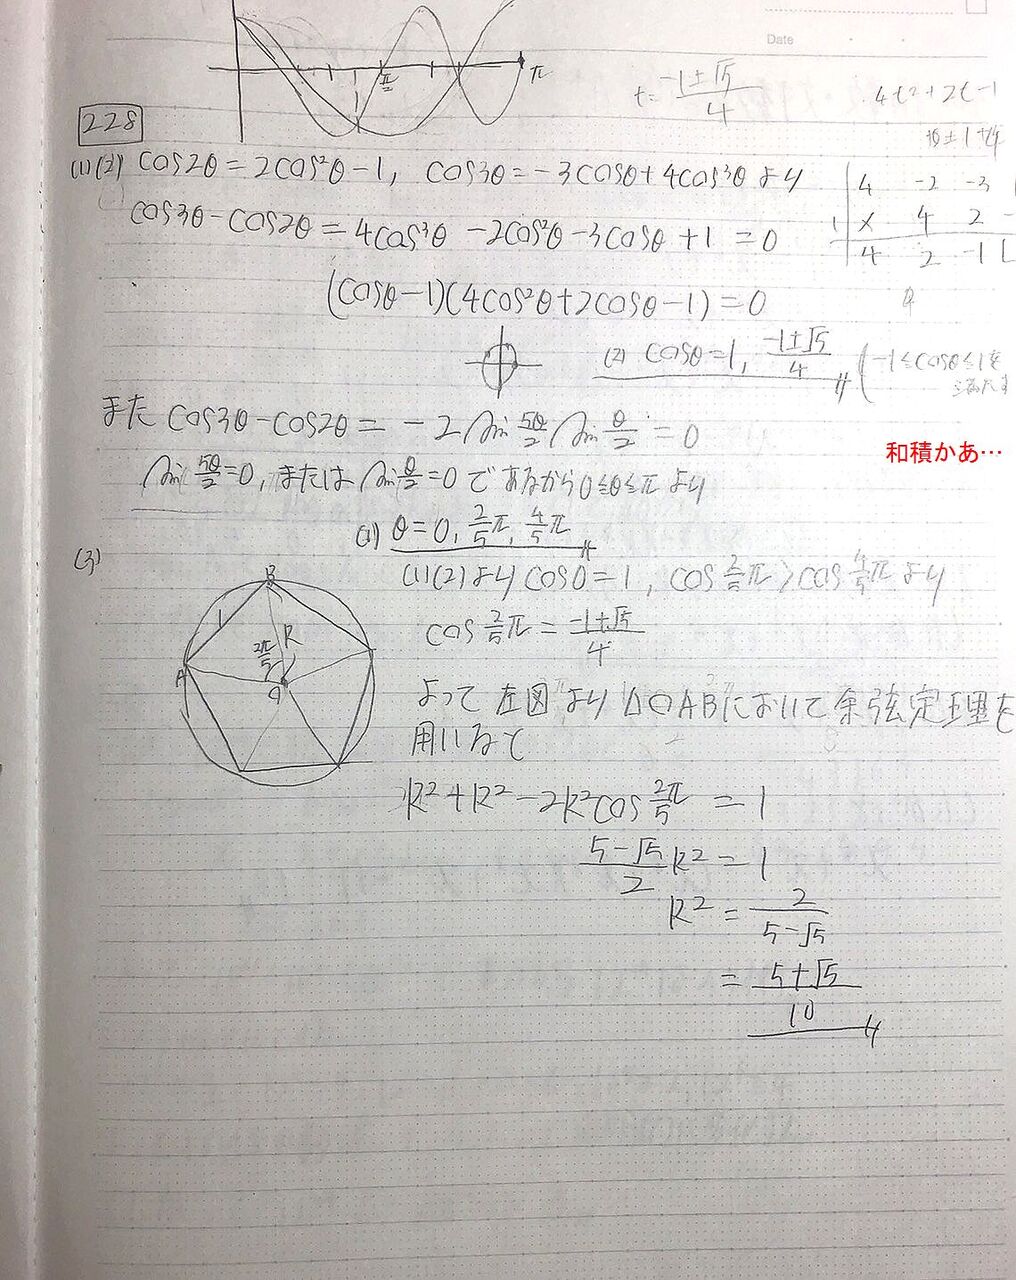 Date
π/2
π
t = (-1±√5)/4
4t²+2t-1
228
(1)(2) cos2θ = 2cos²θ-1, cos3θ = -3cosθ+4cos³θ より
cos3θ-cos2θ = 4cos³θ-2cos²θ-3cosθ+1 = 0
4 -2 -3
1 × 4 2
4 2 -1
(cosθ-1)(4cos²θ+2cosθ-1) = 0
(2) cosθ = 1, (-1±√5)/4 (-1≦cosθ≦1を
また cos3θ-cos2θ = -2 sin 5θ/2 sin θ/2 = 0
和積かあ…
sin 5θ/2 = 0, または sin θ/2 = 0 であるから 0≦θ≦π より
(1) θ = 0, 2/5π, 4/5π
(3)
B
1
R
2π/5
A
O
(1)(2)より cos0 = 1, cos 2/5π > cos 4/5π より
cos 2/5π = (-1+√5)/4
よって 左図より △OABにおいて余弦定理を
用いると
R²+R²-2R²cos 2π/5 = 1
(5-√5)/2 R² = 1
R² = 2/(5-√5)
= (5+√5)/10